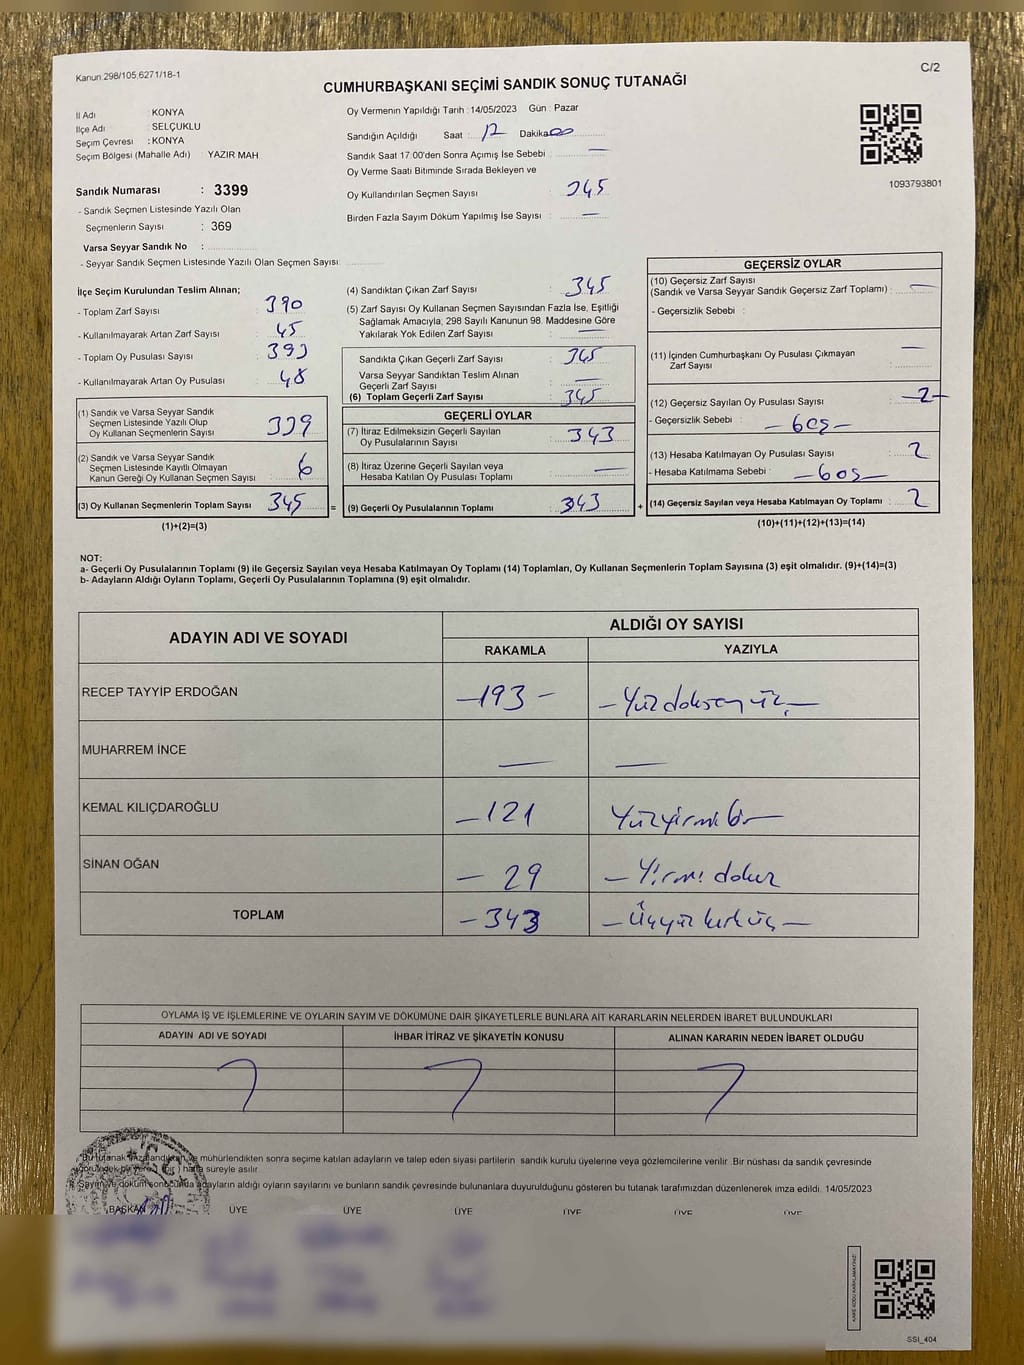 Kanun 298/105,6271/18-1
C/2
CUMHURBAŞKANI SEÇİMİ SANDIK SONUÇ TUTANAĞI
İl Adı : KONYA
İlçe Adı : SELÇUKLU
Seçim Çevresi : KONYA
Seçim Bölgesi (Mahalle Adı) : YAZIR MAH
Sandık Numarası : 3399
- Sandık Seçmen Listesinde Yazılı Olan
Seçmenlerin Sayısı : 369
Varsa Seyyar Sandık No :
- Seyyar Sandık Seçmen Listesinde Yazılı Olan Seçmen Sayısı:
Oy Vermenin Yapıldığı Tarih : 14/05/2023 Gün : Pazar
Sandığın Açıldığı Saat : 17 Dakika 00
Sandık Saat 17:00'den Sonra Açımış İse Sebebi : —
Oy Verme Saati Bitiminde Sırada Bekleyen ve
Oy Kullandırılan Seçmen Sayısı : 345
Birden Fazla Sayım Döküm Yapılmış İse Sayısı : —
1093793801
İlçe Seçim Kurulundan Teslim Alınan;
- Toplam Zarf Sayısı : 390
- Kullanılmayarak Artan Zarf Sayısı : 45
- Toplam Oy Pusulası Sayısı : 393
- Kullanılmayarak Artan Oy Pusulası : 48
(1) Sandık ve Varsa Seyyar Sandık
Seçmen Listesinde Yazılı Olup
Oy Kullanan Seçmenlerin Sayısı : 339
(2) Sandık ve Varsa Seyyar Sandık
Seçmen Listesinde Kayıtlı Olmayan
Kanun Gereği Oy Kullanan Seçmen Sayısı : 6
(3) Oy Kullanan Seçmenlerin Toplam Sayısı : 345 =
(1)+(2)=(3)
(4) Sandıktan Çıkan Zarf Sayısı : 345
(5) Zarf Sayısı Oy Kullanan Seçmen Sayısından Fazla İse, Eşitliği
Sağlamak Amacıyla, 298 Sayılı Kanunun 98. Maddesine Göre
Yakılarak Yok Edilen Zarf Sayısı : —
Sandıkta Çıkan Geçerli Zarf Sayısı : 345
Varsa Seyyar Sandıktan Teslim Alınan
Geçerli Zarf Sayısı : —
(6) Toplam Geçerli Zarf Sayısı : 345
GEÇERLİ OYLAR
(7) İtiraz Edilmeksizin Geçerli Sayılan
Oy Pusulalarının Sayısı : 343
(8) İtiraz Üzerine Geçerli Sayılan veya
Hesaba Katılan Oy Pusulası Toplamı : —
(9) Geçerli Oy Pusulalarının Toplamı : 343 +
GEÇERSİZ OYLAR
(10) Geçersiz Zarf Sayısı
(Sandık ve Varsa Seyyar Sandık Geçersiz Zarf Toplamı) : —
- Geçersizlik Sebebi :
(11) İçinden Cumhurbaşkanı Oy Pusulası Çıkmayan
Zarf Sayısı : —
(12) Geçersiz Sayılan Oy Pusulası Sayısı : -2-
- Geçersizlik Sebebi : - boş -
(13) Hesaba Katılmayan Oy Pusulası Sayısı : 2
- Hesaba Katılmama Sebebi : - boş -
(14) Geçersiz Sayılan veya Hesaba Katılmayan Oy Toplamı : 2
(10)+(11)+(12)+(13)=(14)
NOT:
a- Geçerli Oy Pusulalarının Toplamı (9) ile Geçersiz Sayılan veya Hesaba Katılmayan Oy Toplamı (14) Toplamları, Oy Kullanan Seçmenlerin Toplam Sayısına (3) eşit olmalıdır. (9)+(14)=(3)
b- Adayların Aldığı Oyların Toplamı, Geçerli Oy Pusulalarının Toplamına (9) eşit olmalıdır.
ADAYIN ADI VE SOYADI ALDIĞI OY SAYISI
RAKAMLA YAZIYLA
RECEP TAYYİP ERDOĞAN - 193 - - Yüzdoksan üç -
MUHARREM İNCE — —
KEMAL KILIÇDAROĞLU - 121 Yüzyirmi bir -
SİNAN OĞAN - 29 - Yirmi dokuz
TOPLAM - 343 - Üçyüz kırküç -
OYLAMA İŞ VE İŞLEMLERİNE VE OYLARIN SAYIM VE DÖKÜMÜNE DAİR ŞİKAYETLERLE BUNLARA AİT KARARLARIN NELERDEN İBARET BULUNDUKLARI
ADAYIN ADI VE SOYADI İHBAR İTİRAZ VE ŞİKAYETİN KONUSU ALINAN KARARIN NEDEN İBARET OLDUĞU
Bu tutanak mühürlendikten sonra seçime katılan adayların ve talep eden siyasi partilerin sandık kurulu üyelerine veya gözlemcilerine verilir .Bir nüshası da sandık çevresinde
hafta süreyle asılır.
Sayım ve döküm sonucunda adayların aldığı oyların sayılarını ve bunların sandık çevresinde bulunanlara duyurulduğunu gösteren bu tutanak tarafımızdan düzenlenerek imza edildi. 14/05/2023
BAŞKAN ÜYE ÜYE ÜYE ÜYE ÜYE ÜYE
SSI_404